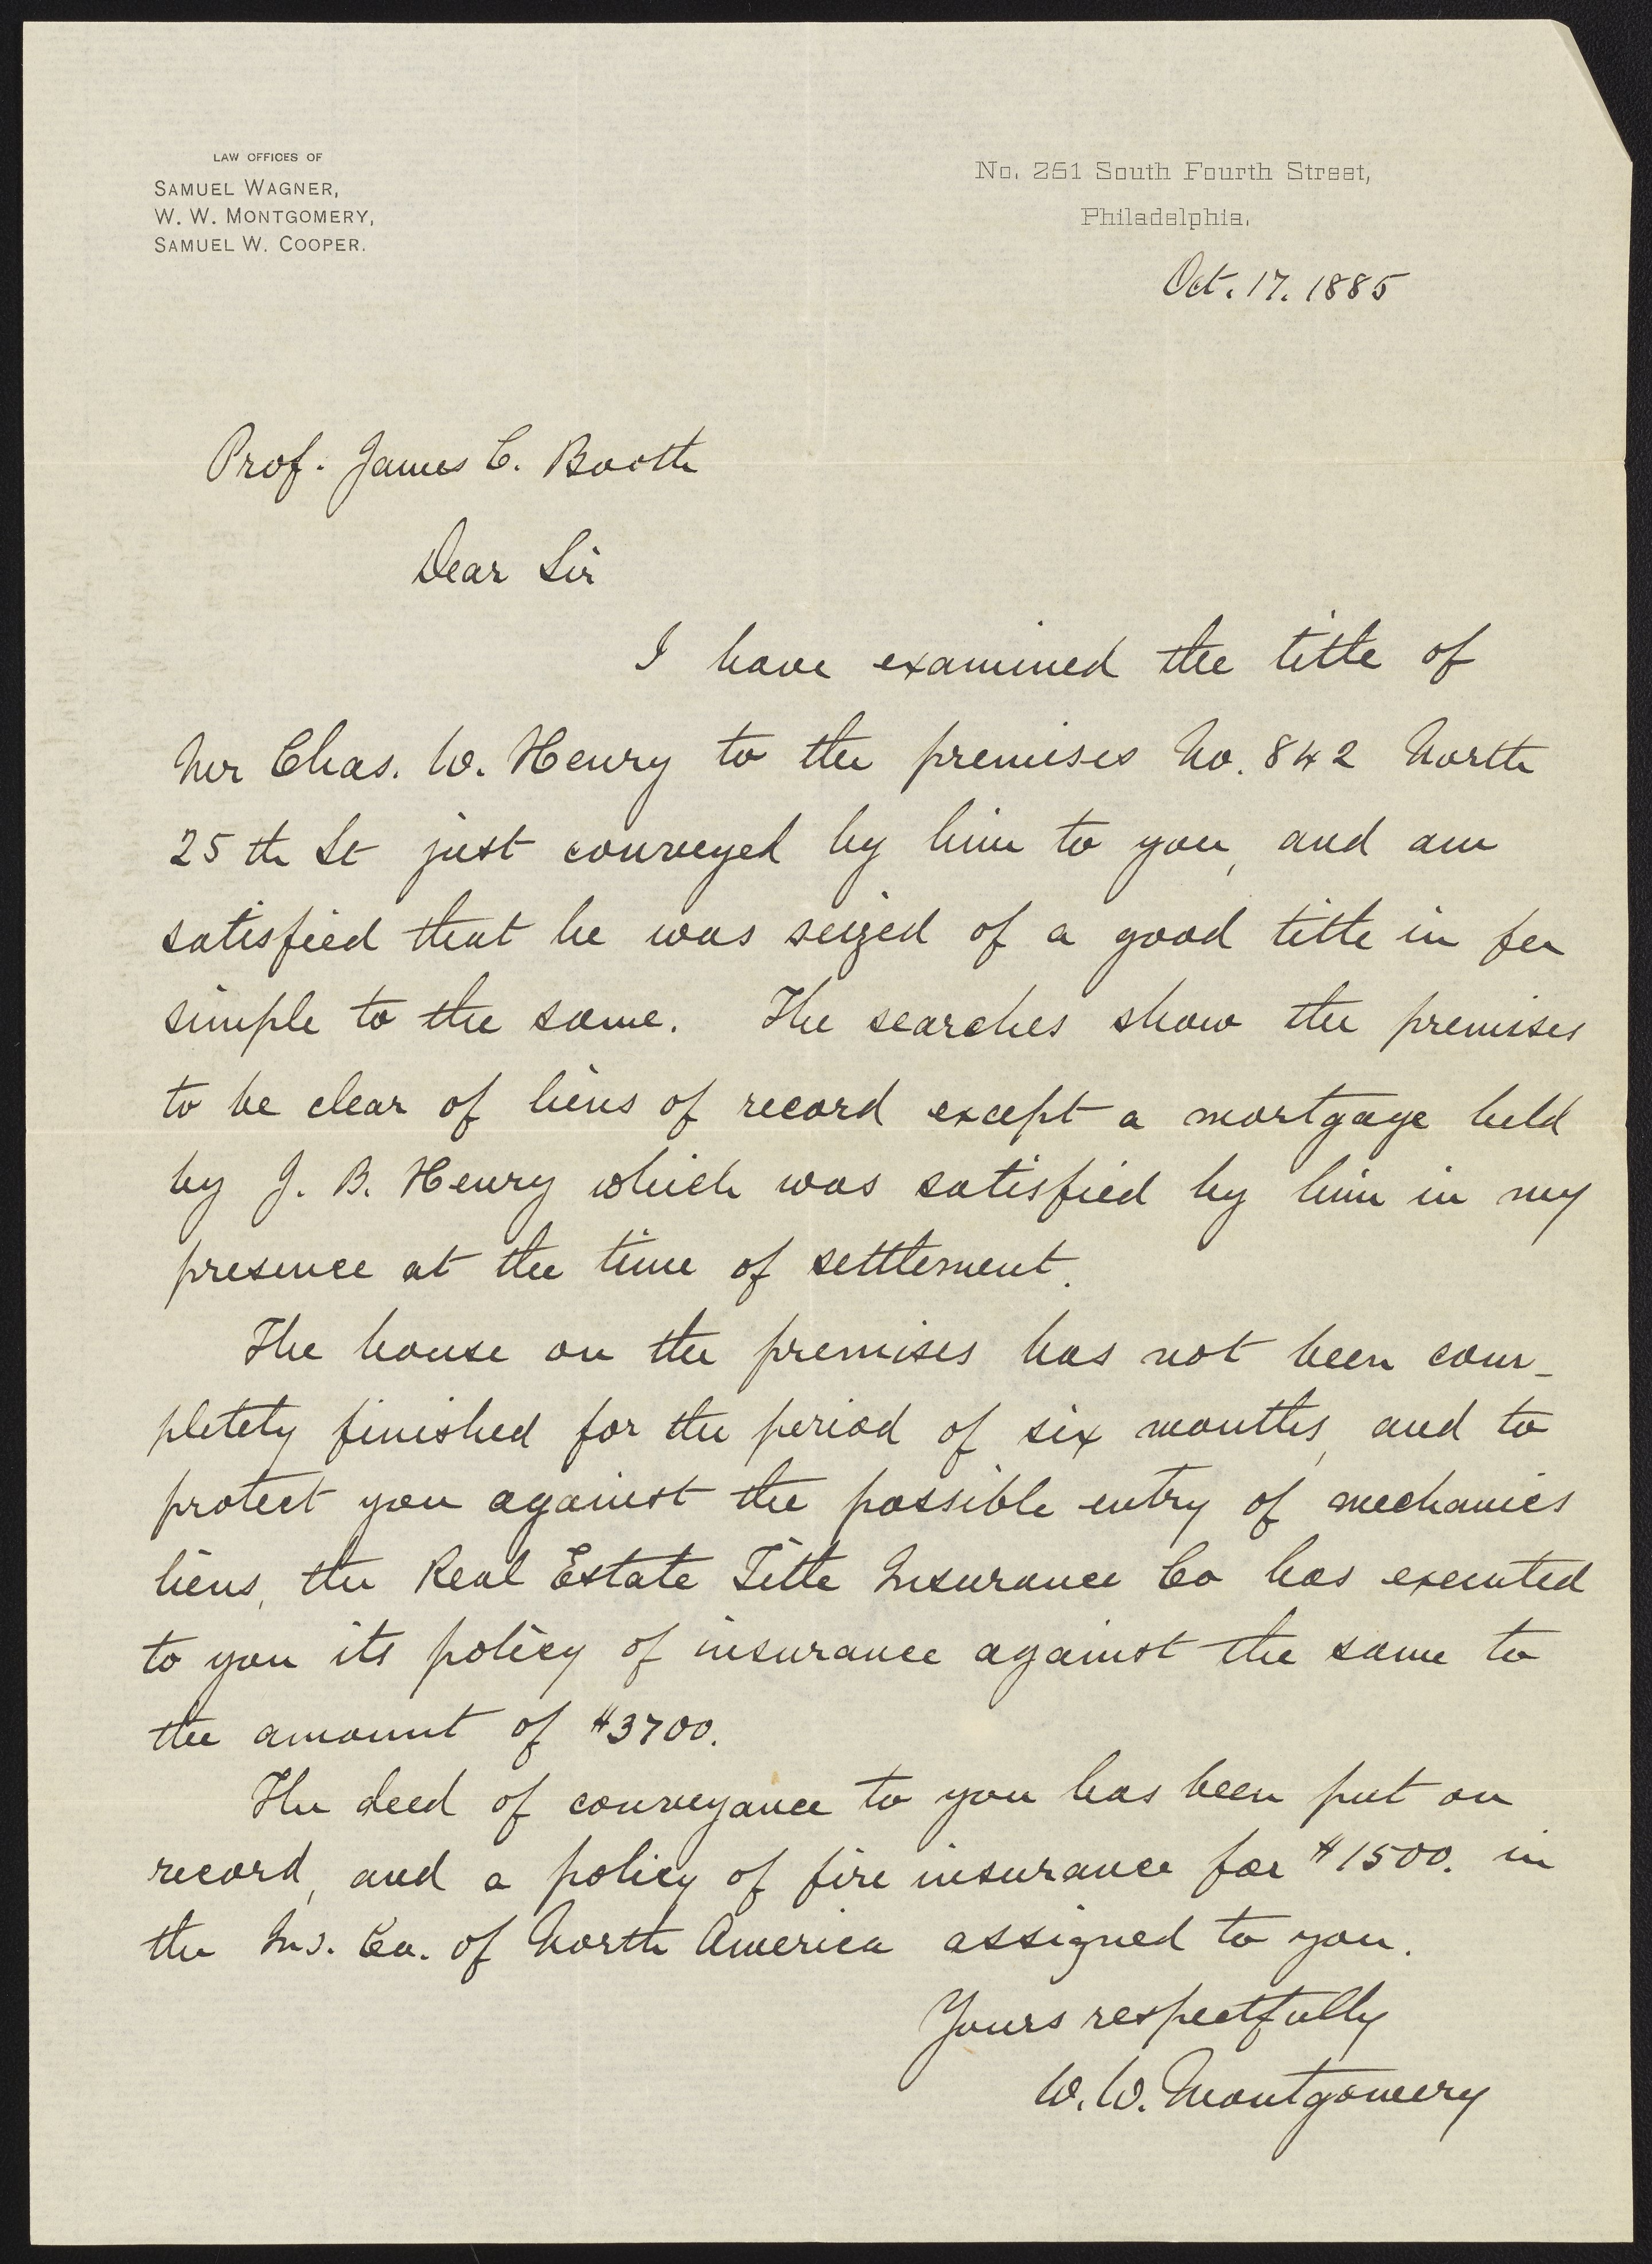 LAW OFFICES OF
SAMUEL WAGNER,
W. W. MONTGOMERY,
SAMUEL W. COOPER.
No. 261 South Fourth Street,
Philadelphia.
Oct. 17. 1885
Prof. James C. Booth
Dear Sir
I have examined the title of
Mr Chas. W. Henry to the premises No. 842 North
25th St just conveyed by him to you, and am
satisfied that he was seized of a good title in fee
simple to the same. The searches show the premises
to be clear of liens of record except a mortgage held
by J. B. Henry which was satisfied by him in my
presence at the time of settlement.
The house on the premises has not been com-
pletely finished for the period of six months, and to
protect you against the possible entry of mechanics
liens, the Real Estate Title Insurance Co has executed
to you its policy of insurance against the same to
the amount of $3700.
The deed of conveyance to you has been put on
record, and a policy of fire insurance for $1500. in
the Ins. Co. of North America assigned to you.
Yours respectfully
W. W. Montgomery